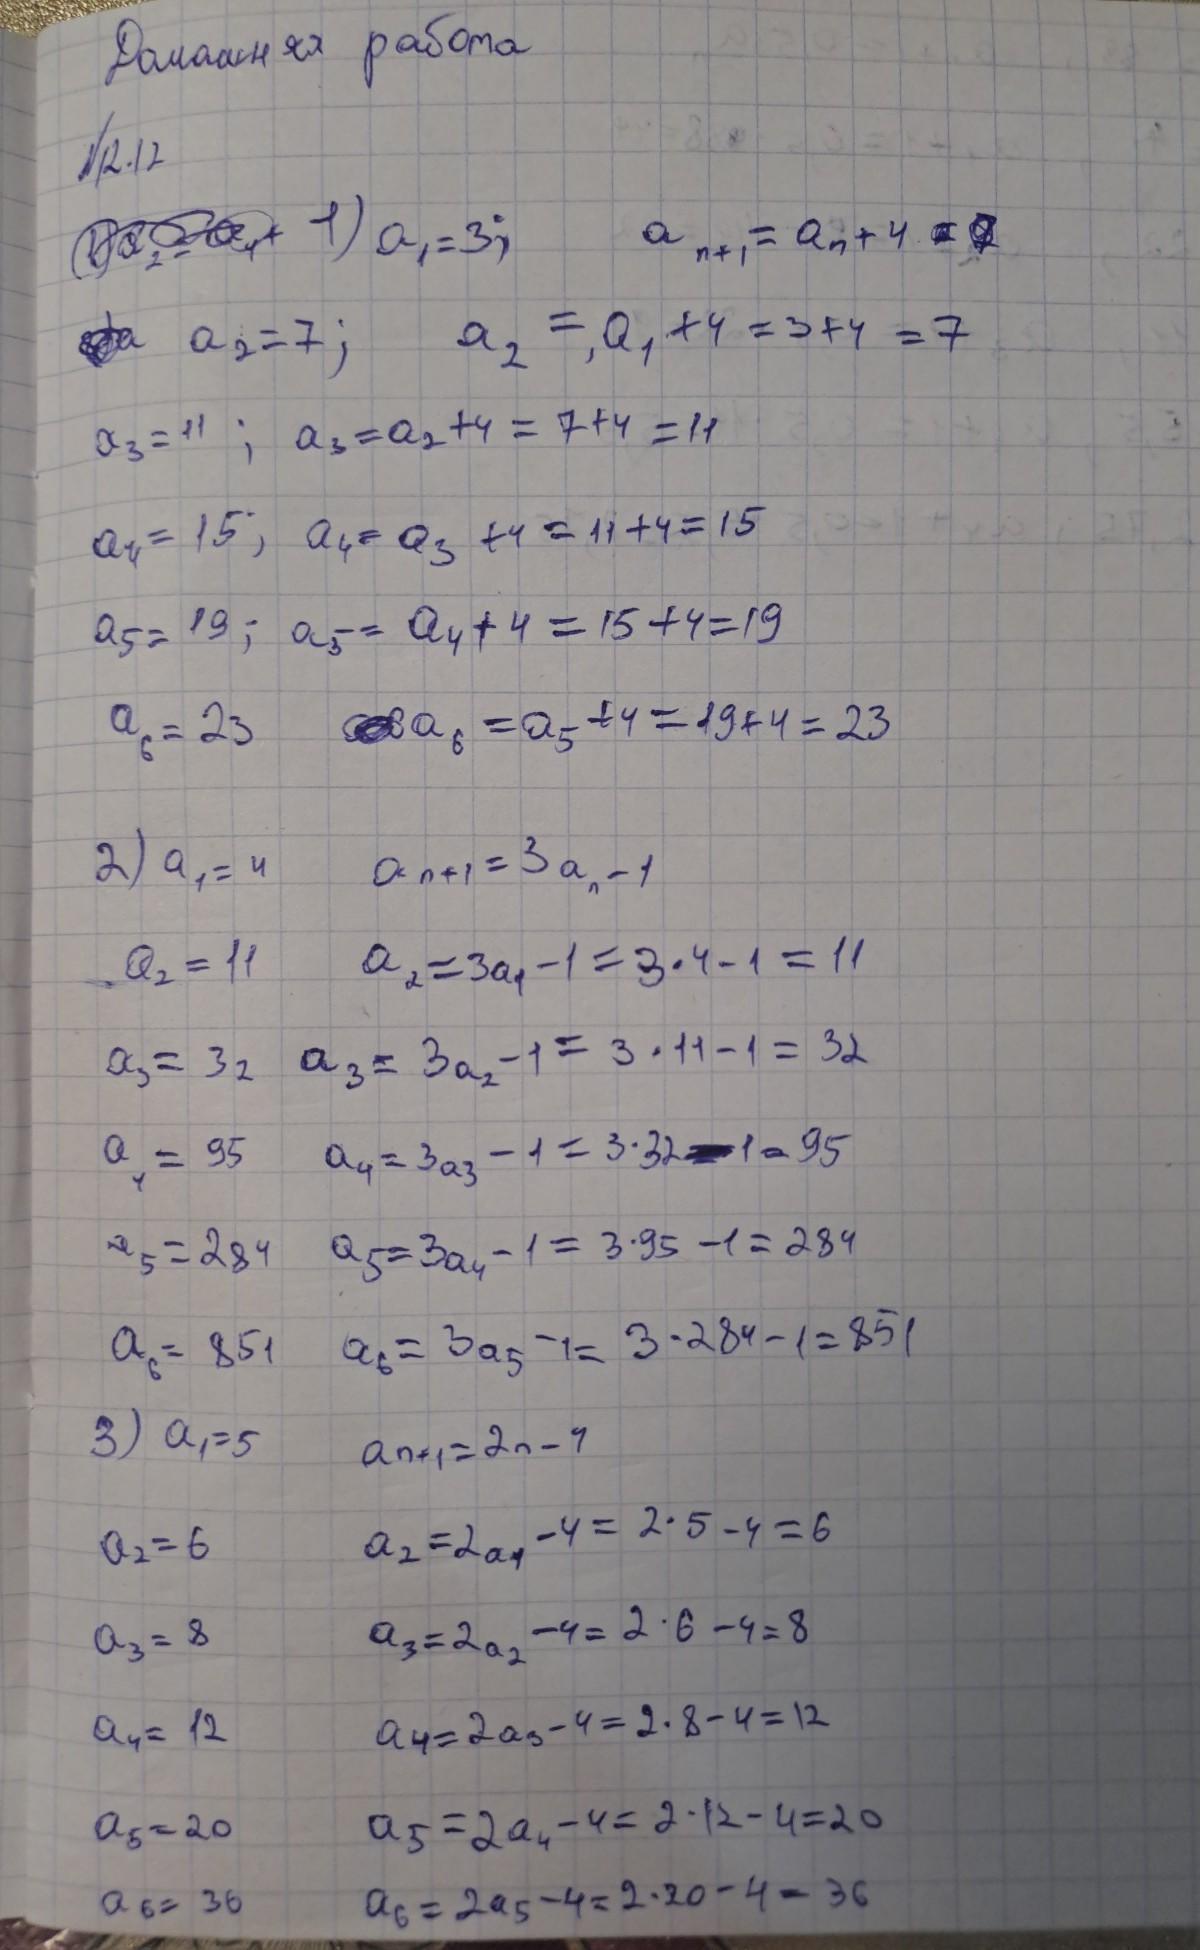 Домашняя работа
№12.12
1) a₁=3; aₙ₊₁=aₙ+4
a₂=7; a₂=a₁+4=3+4=7
a₃=11; a₃=a₂+4=7+4=11
a₄=15; a₄=a₃+4=11+4=15
a₅=19; a₅=a₄+4=15+4=19
a₆=23 a₆=a₅+4=19+4=23
2) a₁=4 aₙ₊₁=3aₙ-1
a₂=11 a₂=3a₁-1=3·4-1=11
a₃=32 a₃=3a₂-1=3·11-1=32
a₄=95 a₄=3a₃-1=3·32-1=95
a₅=284 a₅=3a₄-1=3·95-1=284
a₆=851 a₆=3a₅-1=3·284-1=851
3) a₁=5 aₙ₊₁=2n-4
a₂=6 a₂=2a₁-4=2·5-4=6
a₃=8 a₃=2a₂-4=2·6-4=8
a₄=12 a₄=2a₃-4=2·8-4=12
a₅=20 a₅=2a₄-4=2·12-4=20
a₆=36 a₆=2a₅-4=2·20-4=36